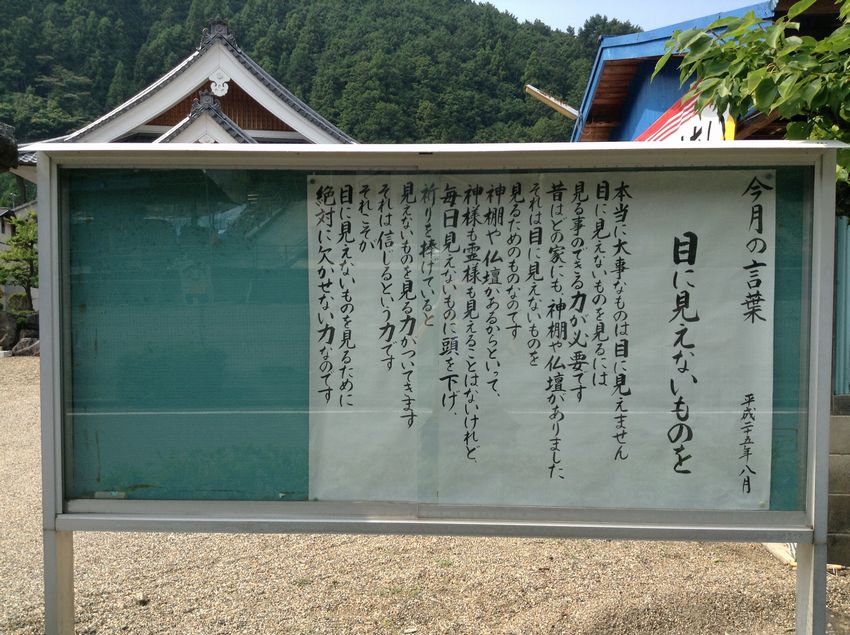 今月の言葉
平成二十五年八月
目に見えないものを
本当に大事なものは目に見えません
目に見えないものを見るには
見る事のできる力が必要です
昔はどの家にも、神棚や仏壇がありました、
それは目に見えないものを
見るためのものなのです
神棚や仏壇があるからといって、
神様も霊様も見えることはないけれど、
毎日見えないものに頭を下げ、
祈りを捧げていると
見えないものを見る力がついてきます
それは信じるという力です
それこそが
目に見えないものを見るために
絶対に欠かせない力なのです